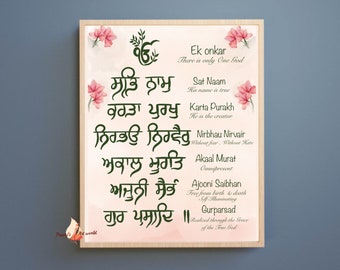 ੴ
Ek onkar
There is only One God
ਸਤਿ ਨਾਮੁ
Sat Naam
His name is true
ਕਰਤਾ ਪੁਰਖੁ
Karta Purakh
He is the creator
ਨਿਰਭਉ ਨਿਰਵੈਰੁ
Nirbhau Nirvair
Without fear, Without Hate
ਅਕਾਲ ਮੂਰਤਿ
Akaal Murat
Omnipresent
ਅਜੂਨੀ ਸੈਭੰ
Ajooni Saibhan
Free from birth & death
Self Illuminating
ਗੁਰ ਪ੍ਰਸਾਦਿ ॥
Gurparsad
Realized through the Grace
of the True God